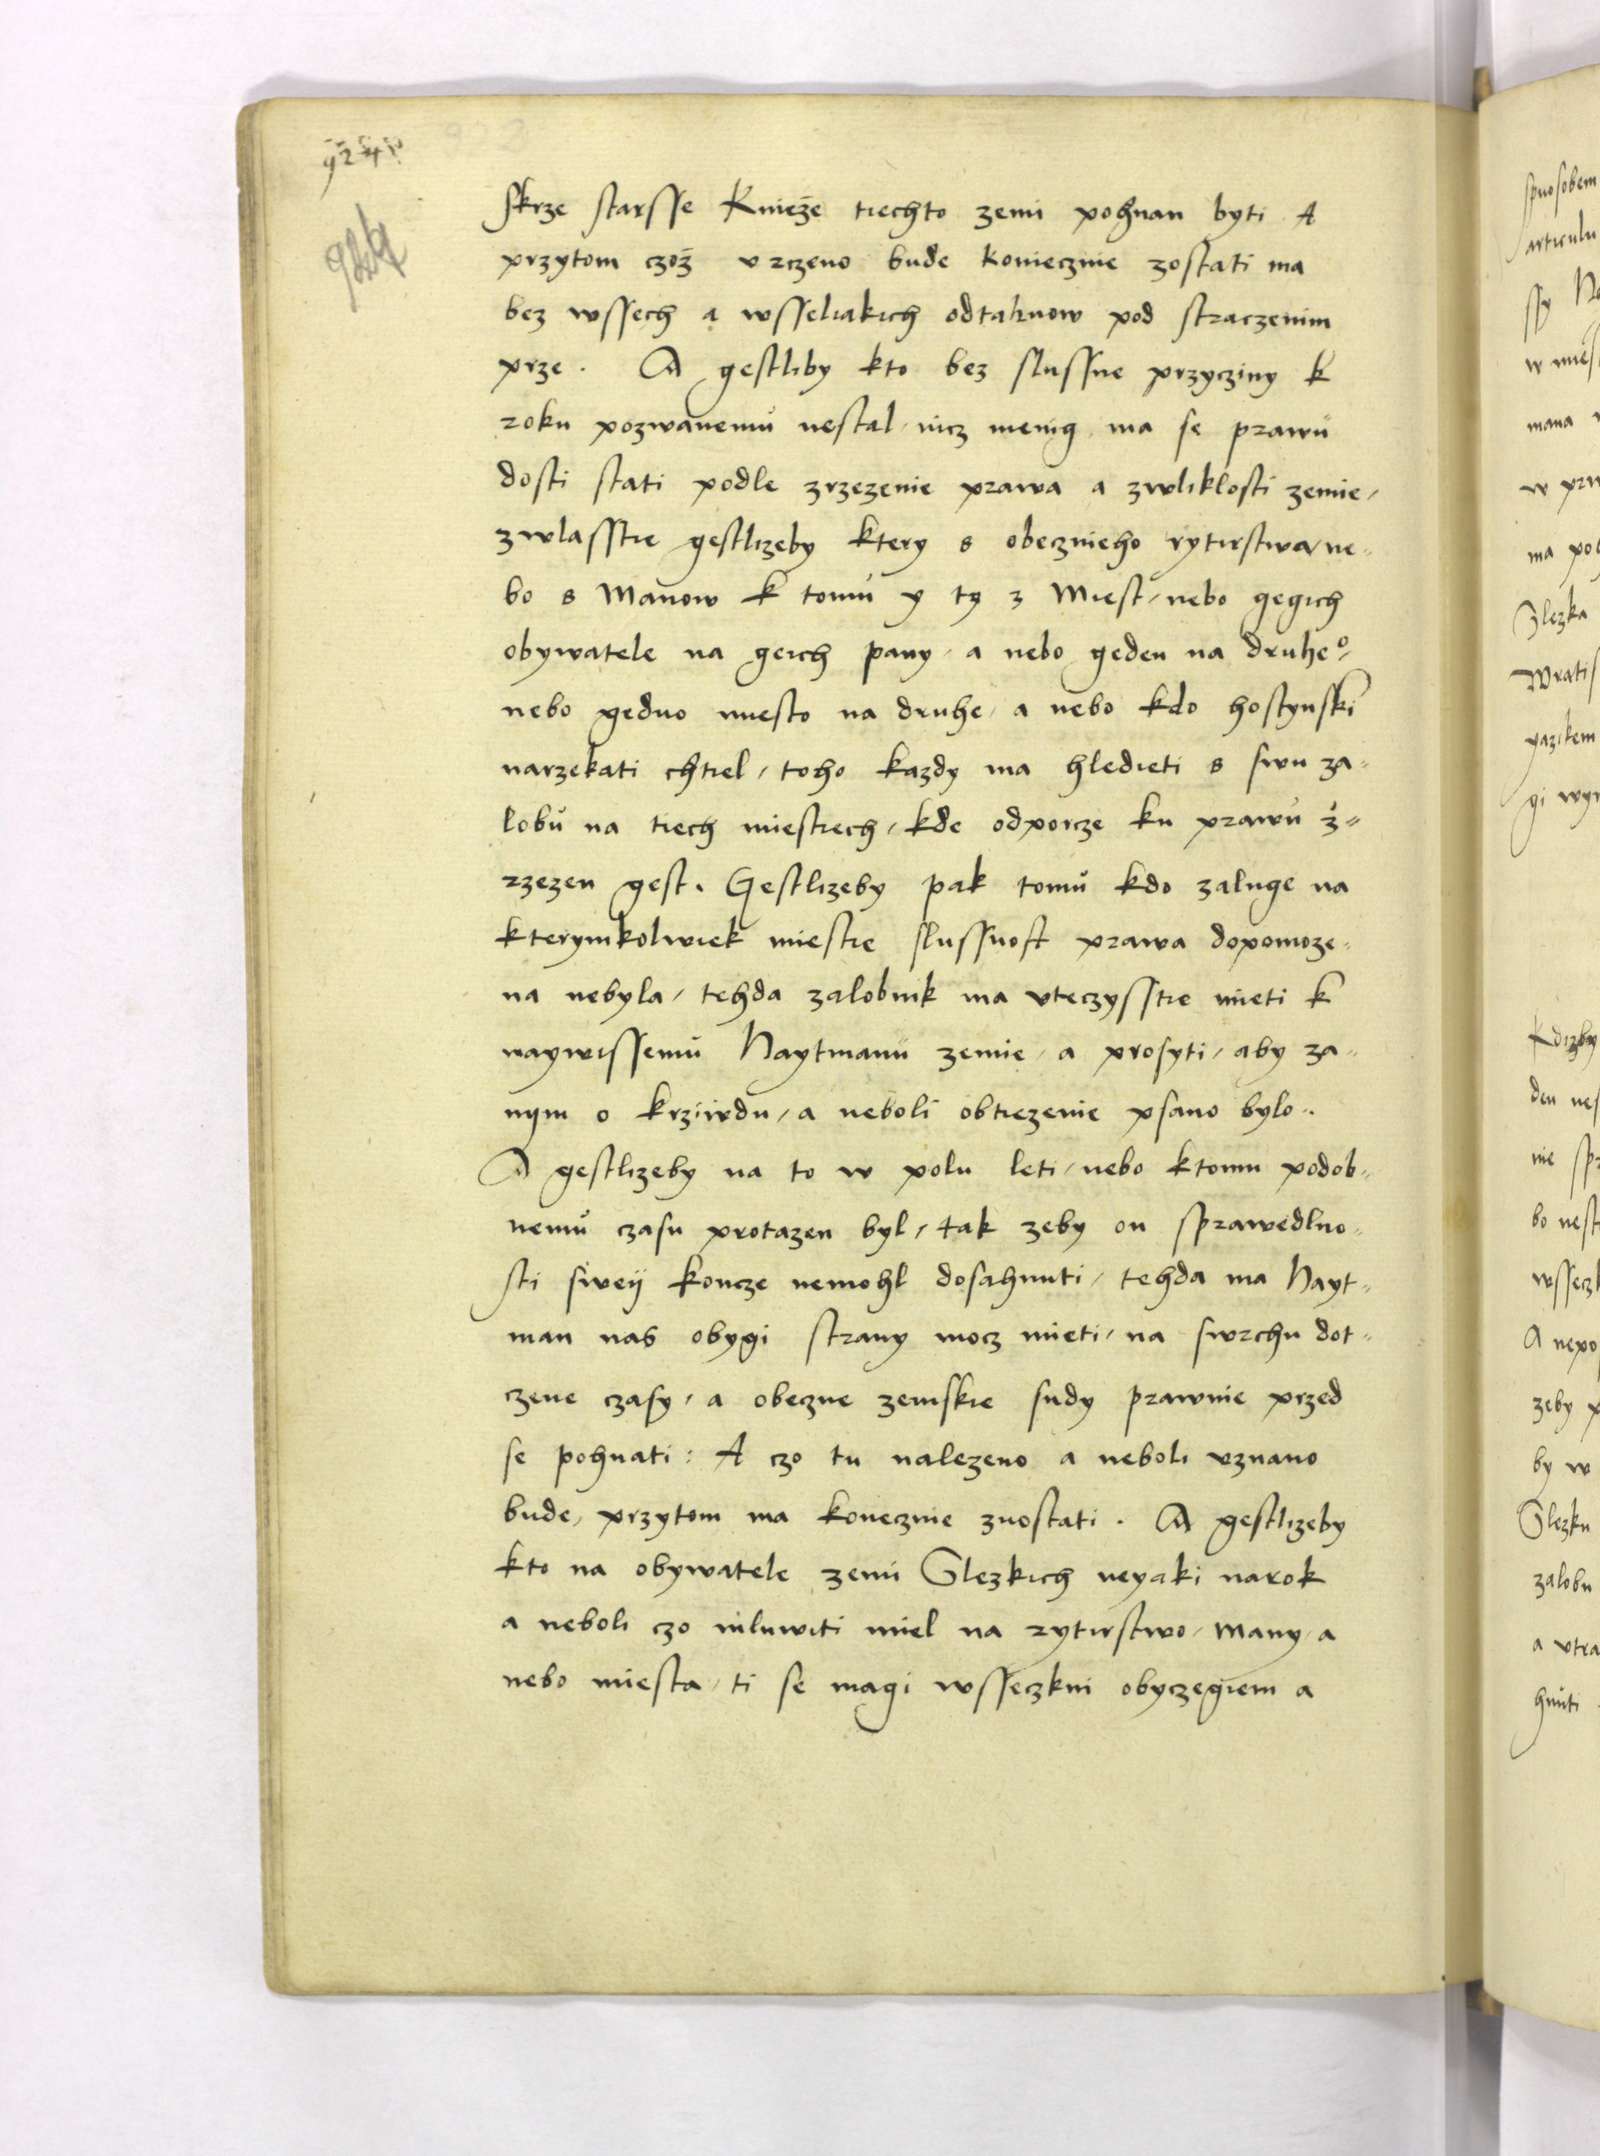 924
924
skrze starsse Knieže tiechto zemi pohnan byti A
przytom czož vrczeno bude konieczne zostati ma
bez wssech a wsseliakich odtahnow pod straczenim
prze. A gestliby kto bez slussne przycziny k
roku pozwanemu nestal, nicz menig ma se prawu
dosti stati podle zrzezenie prawa a zwliklosti zemie,
zwlasstie gestlizeby ktery s obecznieho rytirstwa, ne-
bo s Manow k tomu y ty z Miest, nebo gegich
obywatele na geich pany, a nebo geden na druheo,
nebo gedno miesto na druhe, a nebo kdo hostynski
narzekati chtiel, toho kazdy ma hledieti s swu za-
lobu na tiech miestiech, kde odporcze ku prawu z-
rzezen gest. Gestlizeby pak tomu kdo zaluge na
kterymkolwiek miestie slussnost prawa dopomoze-
na nebyla, tehda zalobnik ma vteczysstie mieti k
naywissemu Haytmanu zemie, a prosyti, aby za
nym o krziwdu, a neboli obtiezenie psano bylo.
A gestlizeby na to w polu leti, nebo ktomu podob-
nemu czasu protazen byl, tak zeby on sprawedlno-
sti swey koncze nemohl dosahnuti, tehda ma Hayt-
man nas obygi strany mocz mieti, na swrchu dot-
czene czasy, a obeczne zemskie sudy prawnie przed
se pohnati: A czo tu nalezeno a neboli vznano
bude, przytom ma konecznie zuostati. A gestlizeby
kto na obywatele zemi Slezkich neyaki narok
a neboli czo mluwiti miel na rytirstwo, Many, a
nebo miesta, ti se magi wsseczkni obyczegiem a
spuosobem
articulu
ssy
mana
ma
Slezka
yazikem
Kdizby
den
nie
zeby
by w
Slezku
zalobu
a